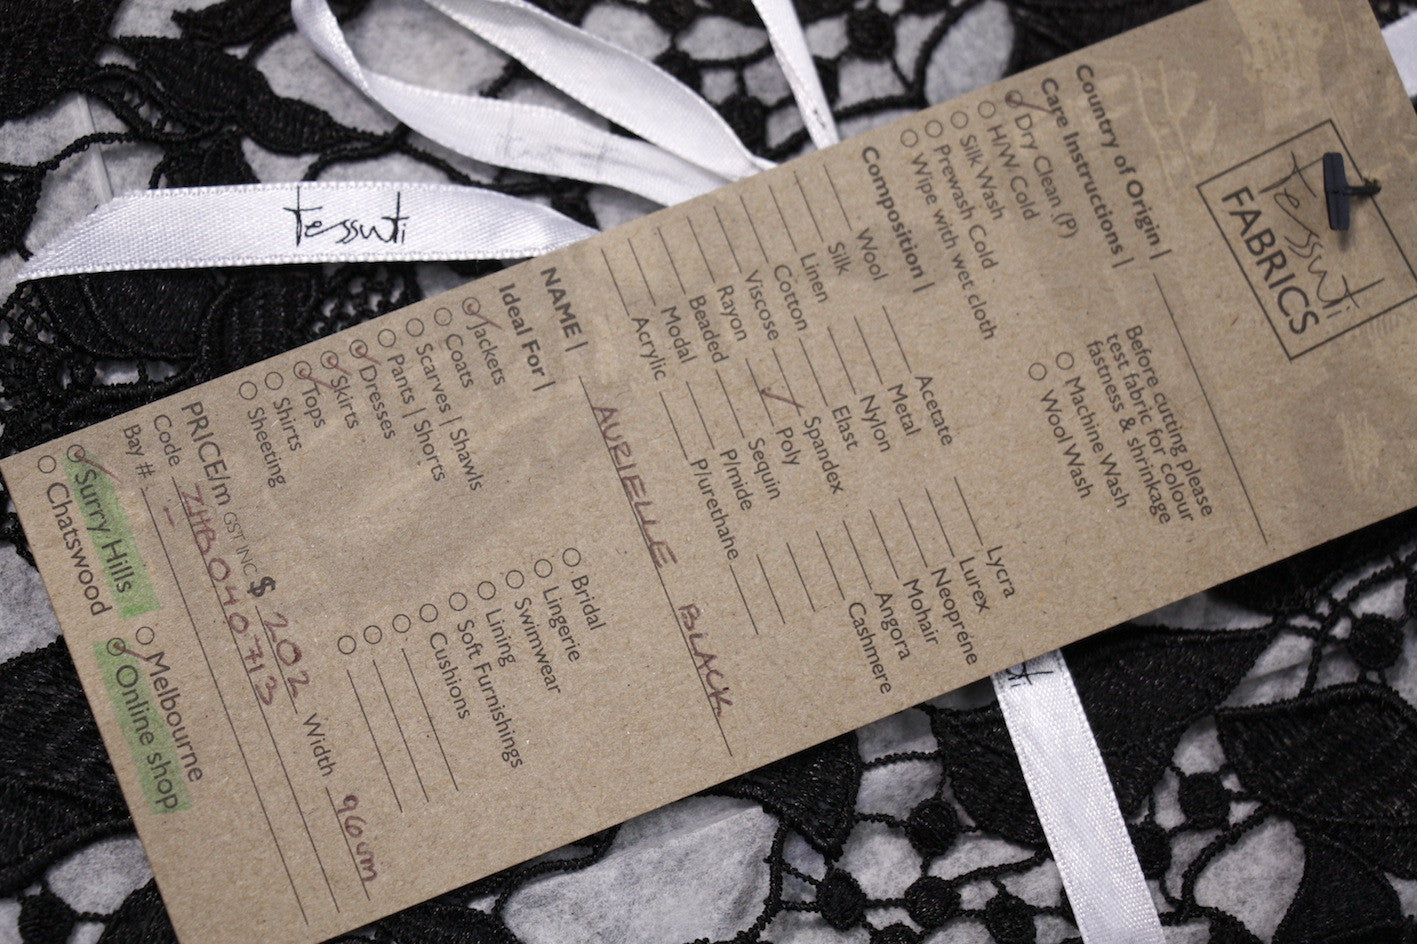 tessuti
FABRICS
Country of Origin |
Care Instructions |
Dry Clean (P)
H/W Cold
Silk Wash
Prewash Cold
Wipe with wet cloth
Before cutting please
test fabric for colour
fastness & shrinkage
Machine Wash
Wool Wash
Composition |
Wool
Silk
Linen
Cotton
Viscose
Rayon
Beaded
Modal
Acrylic
Acetate
Metal
Nylon
Elast
Spandex
Poly
Sequin
P/mide
P/urethane
Lycra
Lurex
Neoprene
Mohair
Angora
Cashmere
NAME | AURIELLE BLACK
Ideal For |
Jackets
Coats
Scarves | Shawls
Pants | Shorts
Dresses
Skirts
Tops
Shirts
Sheeting
Bridal
Lingerie
Swimwear
Lining
Soft Furnishings
Cushions
PRICE/m GST INC $ 202 Width 96cm
Code ZHB040713
Bay # -
Surry Hills
Melbourne
Chatswood
Online shop
tessuti
ti